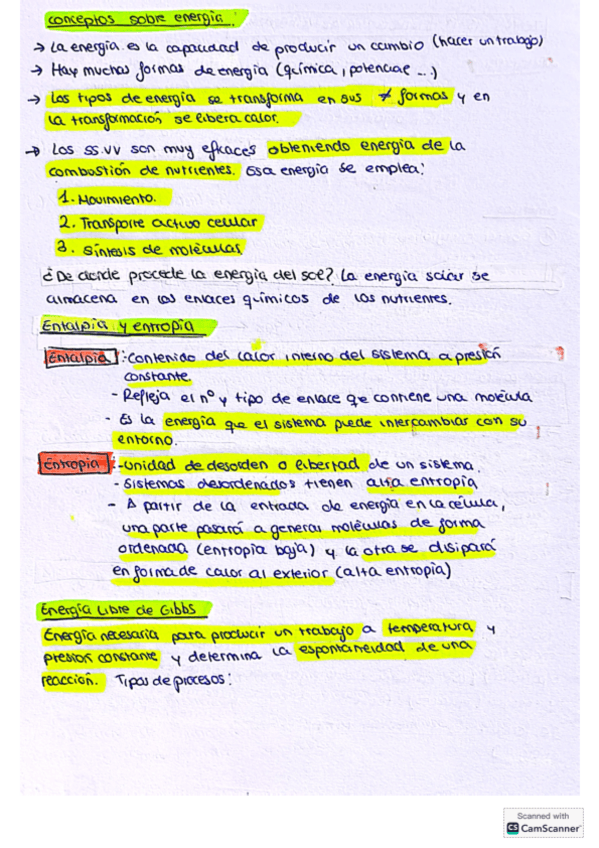 conceptos sobre energía.
→ La energía es la capacidad de producir un cambio (hacer un trabajo)
→ Hay muchas formas de energía (química, potencial ...)
→ Los tipos de energía se transforma en sus ≠ formas y en
la transformación se libera calor.
→ Los ss.vv son muy eficaces obteniendo energía de la
combustión de nutrientes. Esa energía se emplea:
1. Movimiento.
2. Transporte activo celular
3. Síntesis de moléculas.
¿De donde procede la energía del sol? La energía solar se
almacena en los enlaces químicos de los nutrientes.
Entalpía y entropía
Entalpía: Contenido del calor interno del sistema a presión
constante.
- Refleja el nº y tipo de enlace que contiene una molécula
- Es la energía que el sistema puede intercambiar con su
entorno.
Entropía: - Unidad de desorden o libertad de un sistema.
- Sistemas desordenados tienen alta entropía
- A partir de la entrada de energía en la célula,
una parte pasará a generar moléculas de forma
ordenada (entropía baja) y la otra se disipará
en forma de calor al exterior (alta entropía)
Energía Libre de Gibbs
Energía necesaria para producir un trabajo a temperatura y
presión constante y determina la espontaneidad de una
reacción. Tipos de procesos:
Scanned with
CS CamScanner